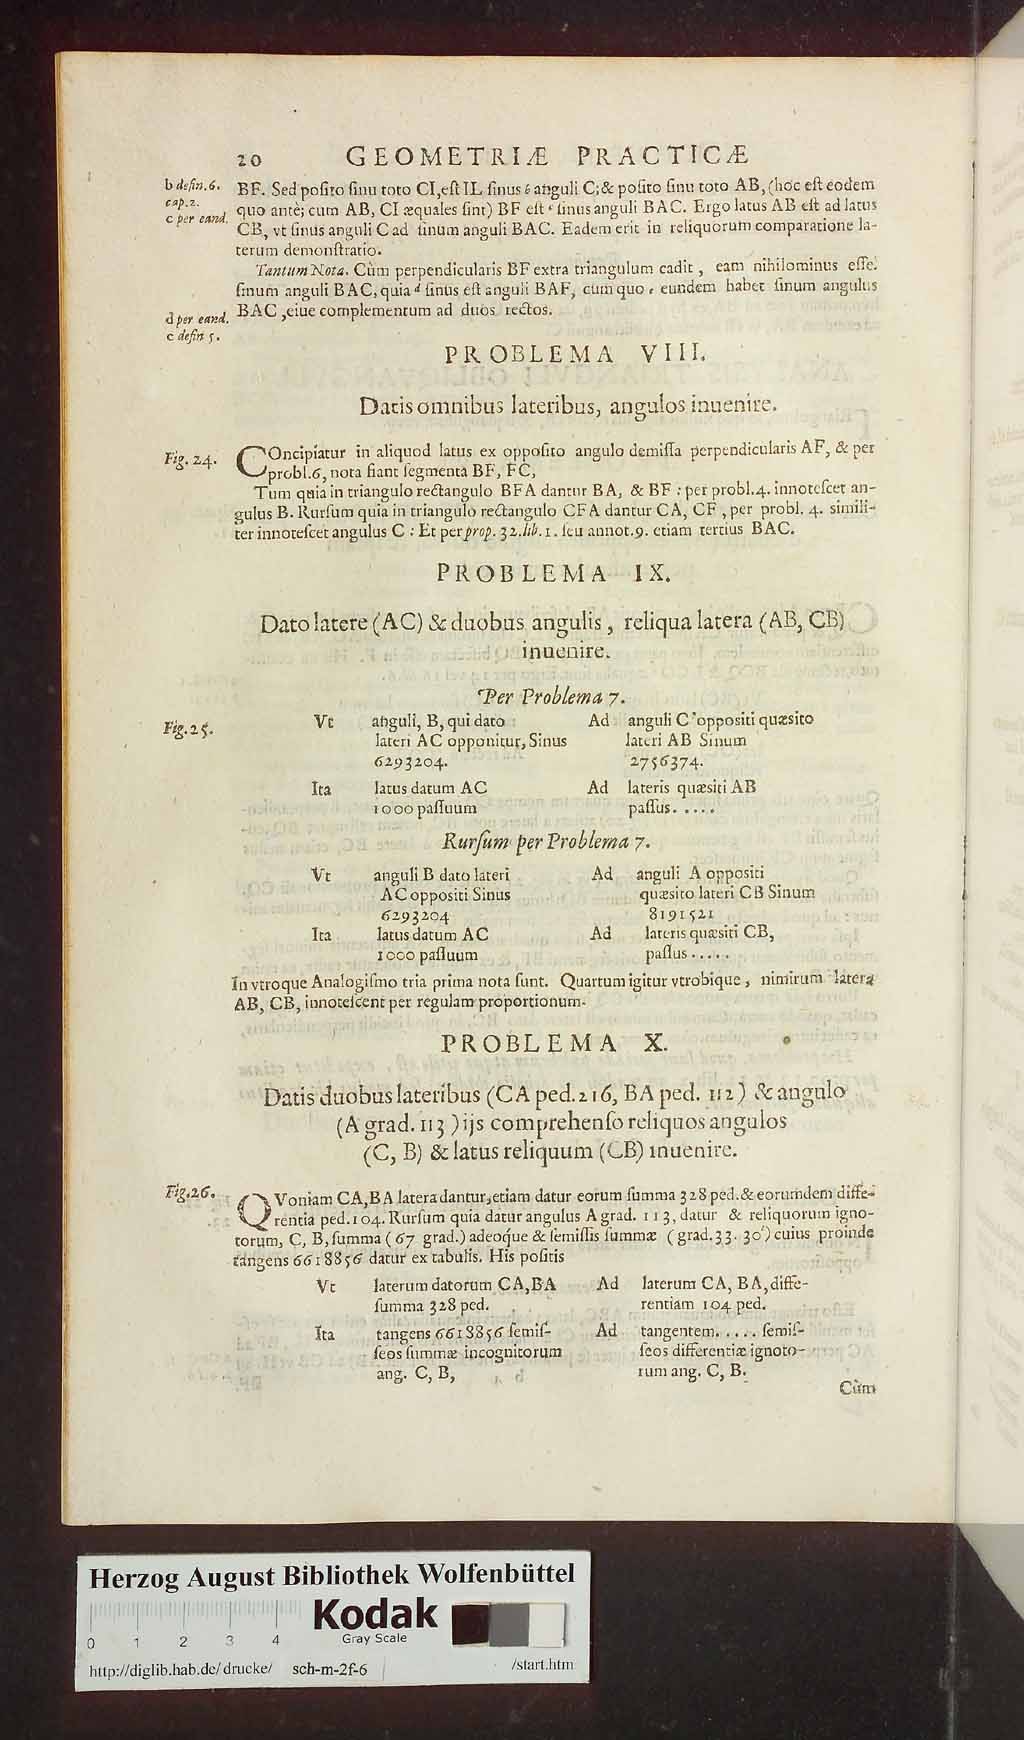 20 GEOMETRIÆ PRACTICÆ
b defin.6.
cap.2.
c per eand.
BF. Sed posito sinu toto CI, est IL sinus b anguli C; & posito sinu toto AB, (hoc est eodem
quo antè; cum AB, CI æquales sint) BF est c sinus anguli BAC. Ergo latus AB est ad latus
CB, vt sinus anguli C ad sinum anguli BAC. Eadem erit in reliquorum comparatione la-
terum demonstratio.
Tantum Nota. Cùm perpendicularis BF extra triangulum cadit, eam nihilominus esse
sinum anguli BAC, quia d sinus est anguli BAF, cum quo e eundem habet sinum angulus
BAC, eiue complementum ad duos rectos.
d per eand.
e defin 5.
PROBLEMA VIII.
Datis omnibus lateribus, angulos inuenire.
Fig. 24.
COncipiatur in aliquod latus ex opposito angulo demissa perpendicularis AF, & per
probl.6, nota fiant segmenta BF, FC,
Tum quia in triangulo rectangulo BFA dantur BA, & BF : per probl.4. innotescet an-
gulus B. Rursum quia in triangulo rectangulo CFA dantur CA, CF, per probl. 4. simili-
ter innotescet angulus C : Et per prop. 32. lib. 1. seu annot.9. etiam tertius BAC.
PROBLEMA IX.
Dato latere (AC) & duobus angulis, reliqua latera (AB, CB)
inuenire.
Per Problema 7.
Fig. 25.
Vt anguli, B, qui dato Ad anguli C oppositi quæsito
lateri AC opponitur, Sinus lateri AB Sinum
6293204. 2756374.
Ita latus datum AC Ad lateris quæsiti AB
1000 passuum passus.....
Rursum per Problema 7.
Vt anguli B dato lateri Ad anguli A oppositi
AC oppositi Sinus quæsito lateri CB Sinum
6293204 8191521
Ita latus datum AC Ad lateris quæsiti CB,
1000 passuum passus.....
In vtroque Analogismo tria prima nota sunt. Quartum igitur vtrobique, nimirum latera
AB, CB, innotescent per regulam proportionum.
PROBLEMA X.
Datis duobus lateribus (CA ped. 216, BA ped. 112) & angulo
(A grad. 113) ijs comprehenso reliquos angulos
(C, B) & latus reliquum (CB) inuenire.
Fig. 26.
QVoniam CA, BA latera dantur, etiam datur eorum summa 328 ped. & eorumdem diffe-
rentia ped. 104. Rursum quia datur angulus A grad. 113, datur & reliquorum igno-
torum, C, B, summa (67 grad.) adeoque & semissis summæ (grad. 33. 30') cuius proinde
tangens 6618856 datur ex tabulis. His positis
Vt laterum datorum CA, BA Ad laterum CA, BA, diffe-
summa 328 ped. rentiam 104 ped.
Ita tangens 6618856 semis- Ad tangentem..... semis-
seos summæ incognitorum seos differentiæ ignoto-
ang. C, B, rum ang. C, B.
Cùm
Herzog August Bibliothek Wolfenbüttel
Kodak
Gray Scale
0 1 2 3 4
http://diglib.hab.de/drucke/ sch-m-2f-6 /start.htm